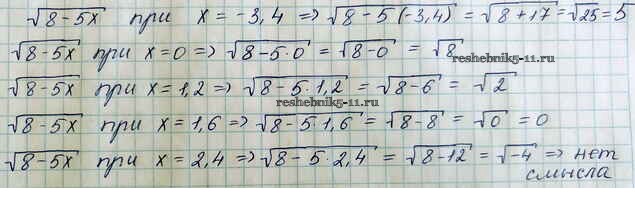 √(8-5x) при x = -3,4 => √(8-5(-3,4)) = √(8+17) = √25 = 5
√(8-5x) при x=0 => √(8-5·0) = √(8-0) = √8
reshebnik5-11.ru
√(8-5x) при x=1,2 => √(8-5·1,2) = √(8-6) = √2
reshebnik5-11.ru
√(8-5x) при x=1,6 => √(8-5·1,6) = √(8-8) = √0 = 0
√(8-5x) при x = 2,4 => √(8-5·2,4) = √(8-12) = √-4 => нет
смысла